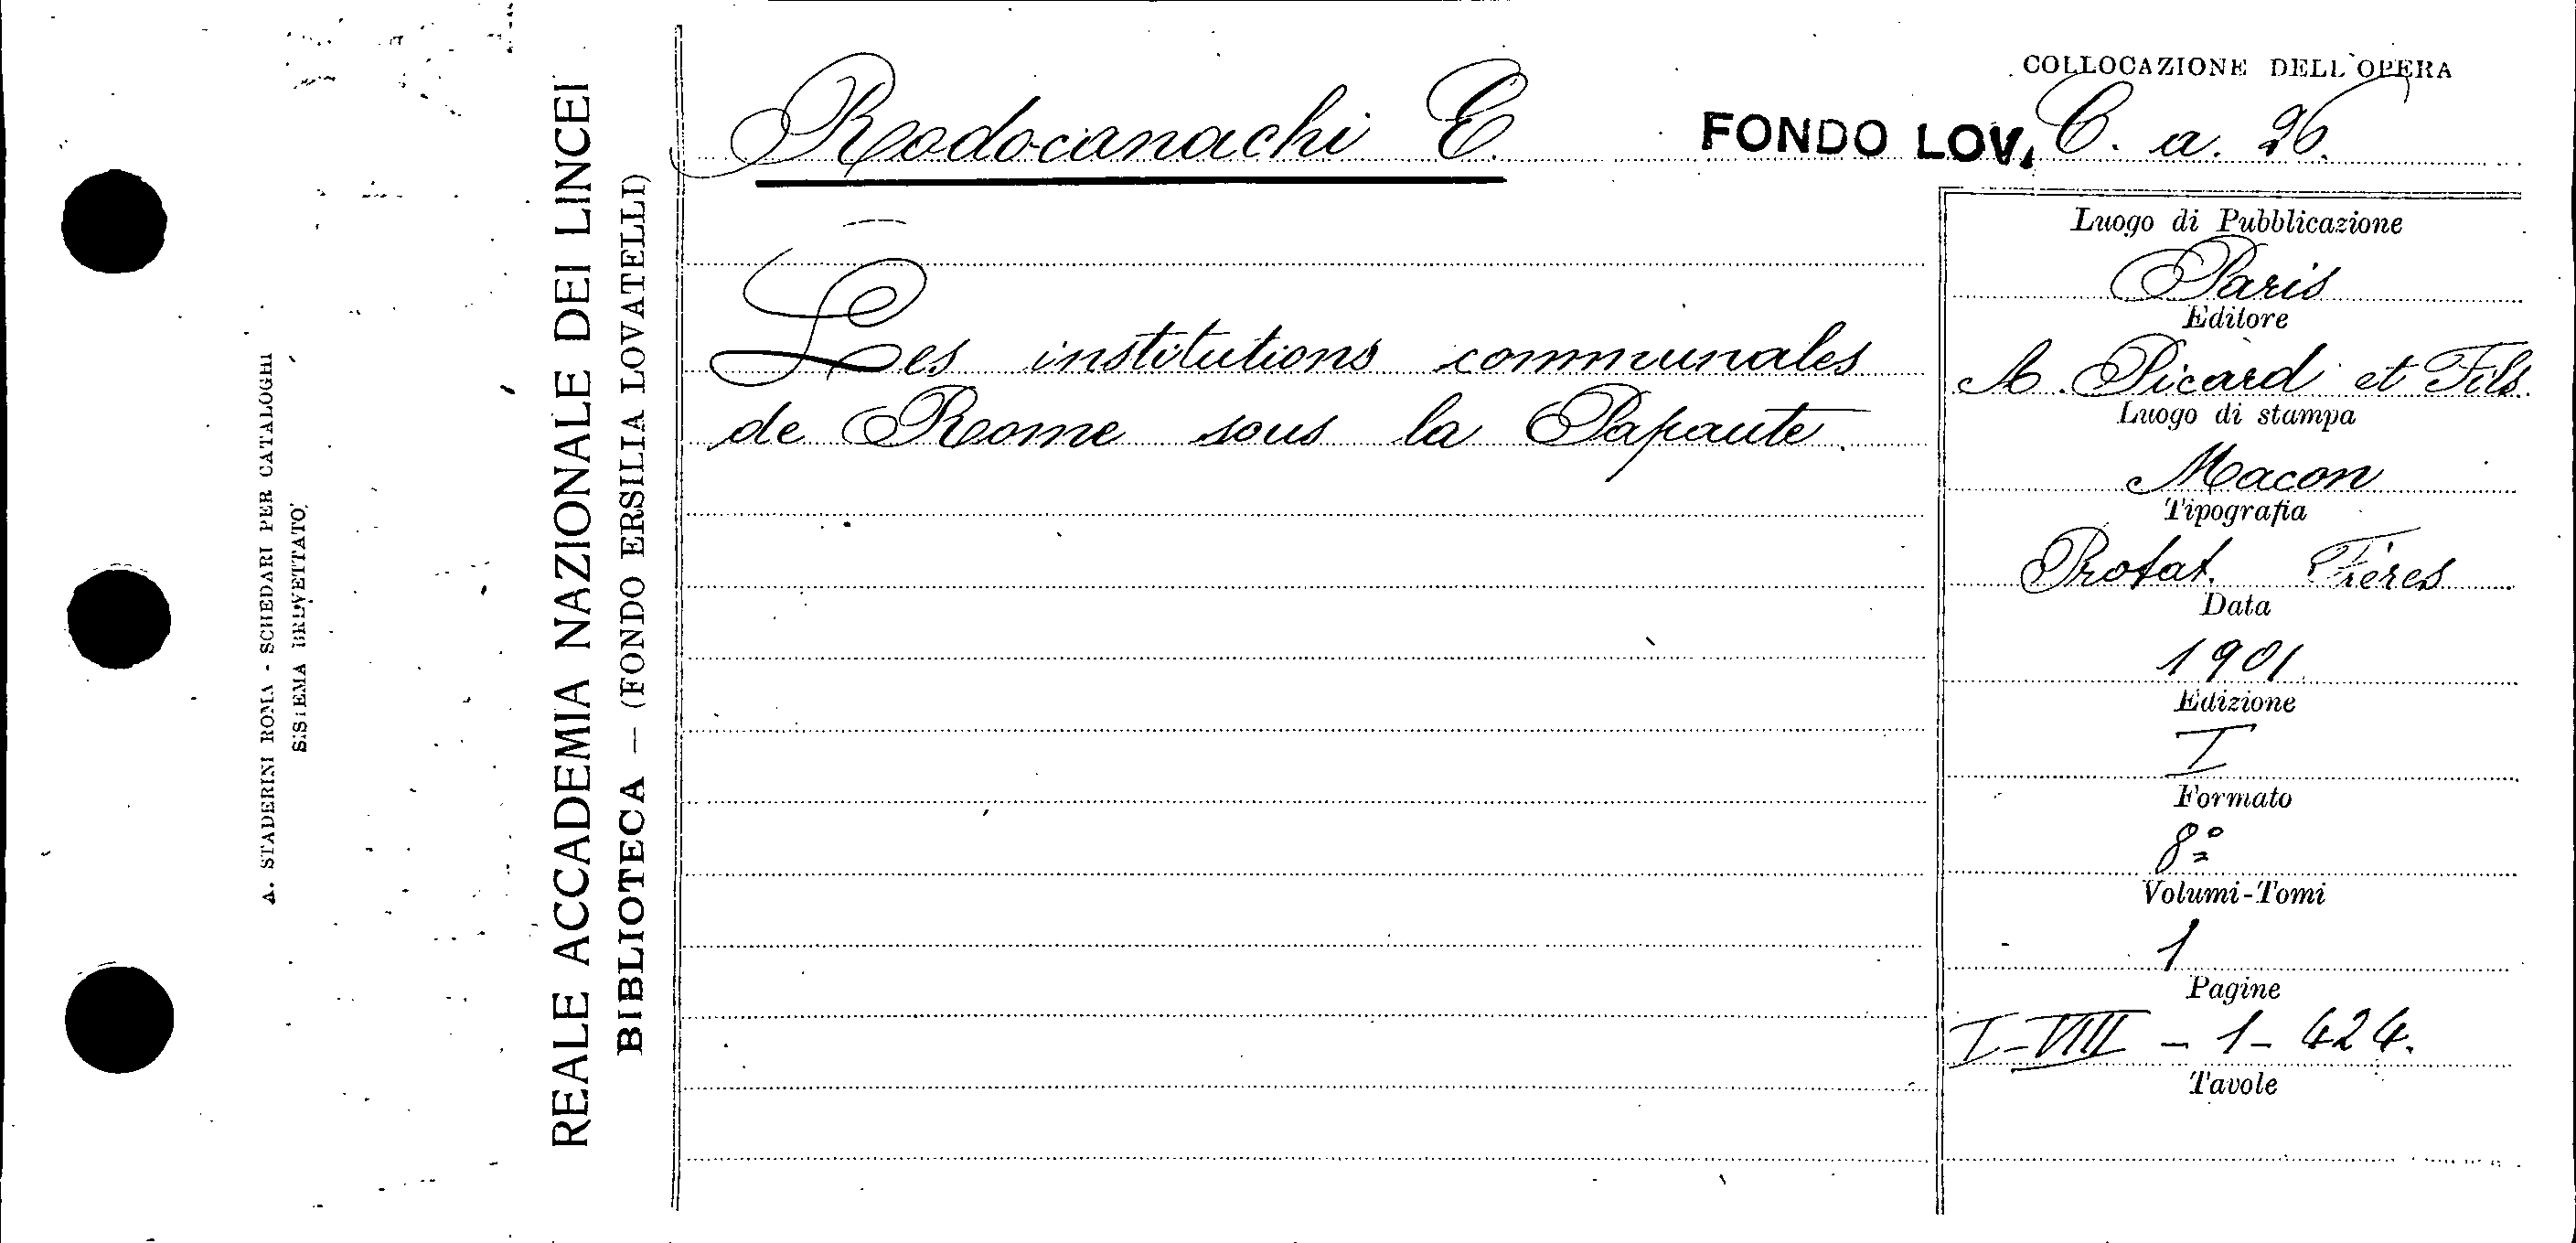 A. STADERINI ROMA - SCHEDARI PER CATALOGHI
SISTEMA BREVETTATO
REALE ACCADEMIA NAZIONALE DEI LINCEI
BIBLIOTECA — (FONDO ERSILIA LOVATELLI)
COLLOCAZIONE DELL'OPERA
Rodocanachi E. FONDO LOV. C. a. 26.
Les institutions communales
de Rome sous la Papauté.
Luogo di Pubblicazione
Paris
Editore
A. Picard et Fils.
Luogo di stampa
Macon
Tipografia
Protat Frères
Data
1901
Edizione
I
Formato
8º
Volumi-Tomi
1
Pagine
I-VIII - 1 - 424.
Tavole